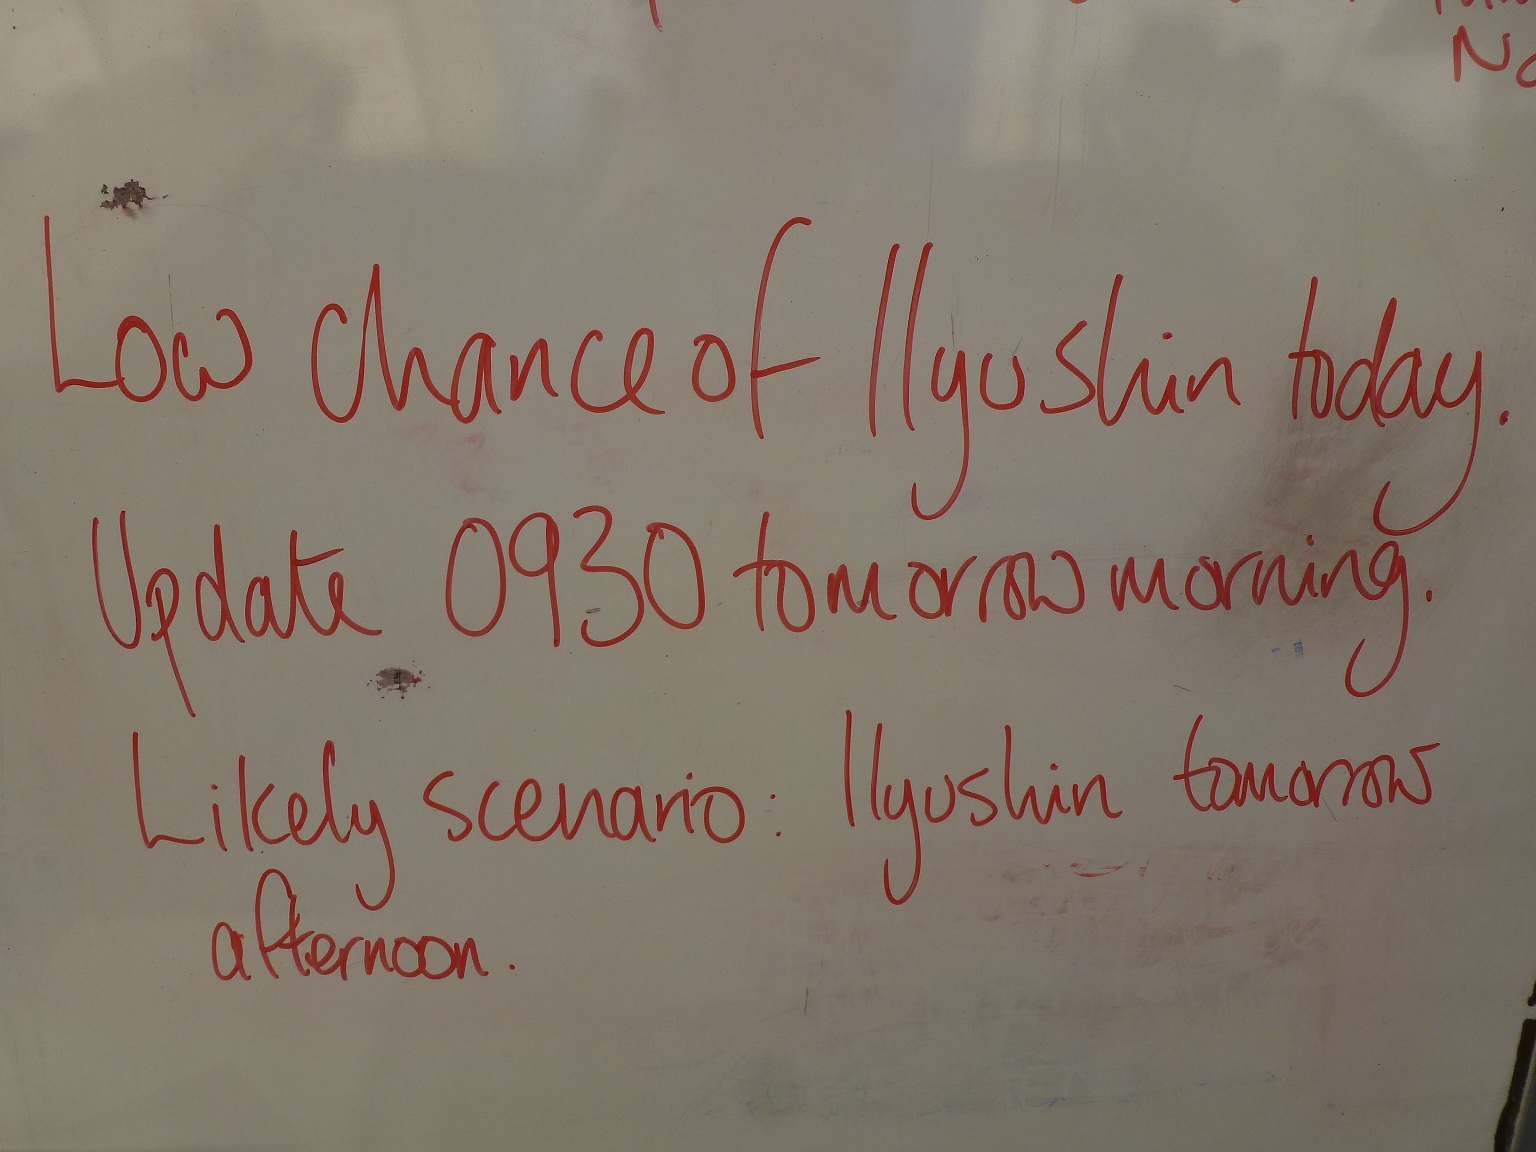 No
Low chance of Ilyushin today.
Update 0930 tomorrow morning.
Likely scenario: Ilyushin tomorrow
afternoon.